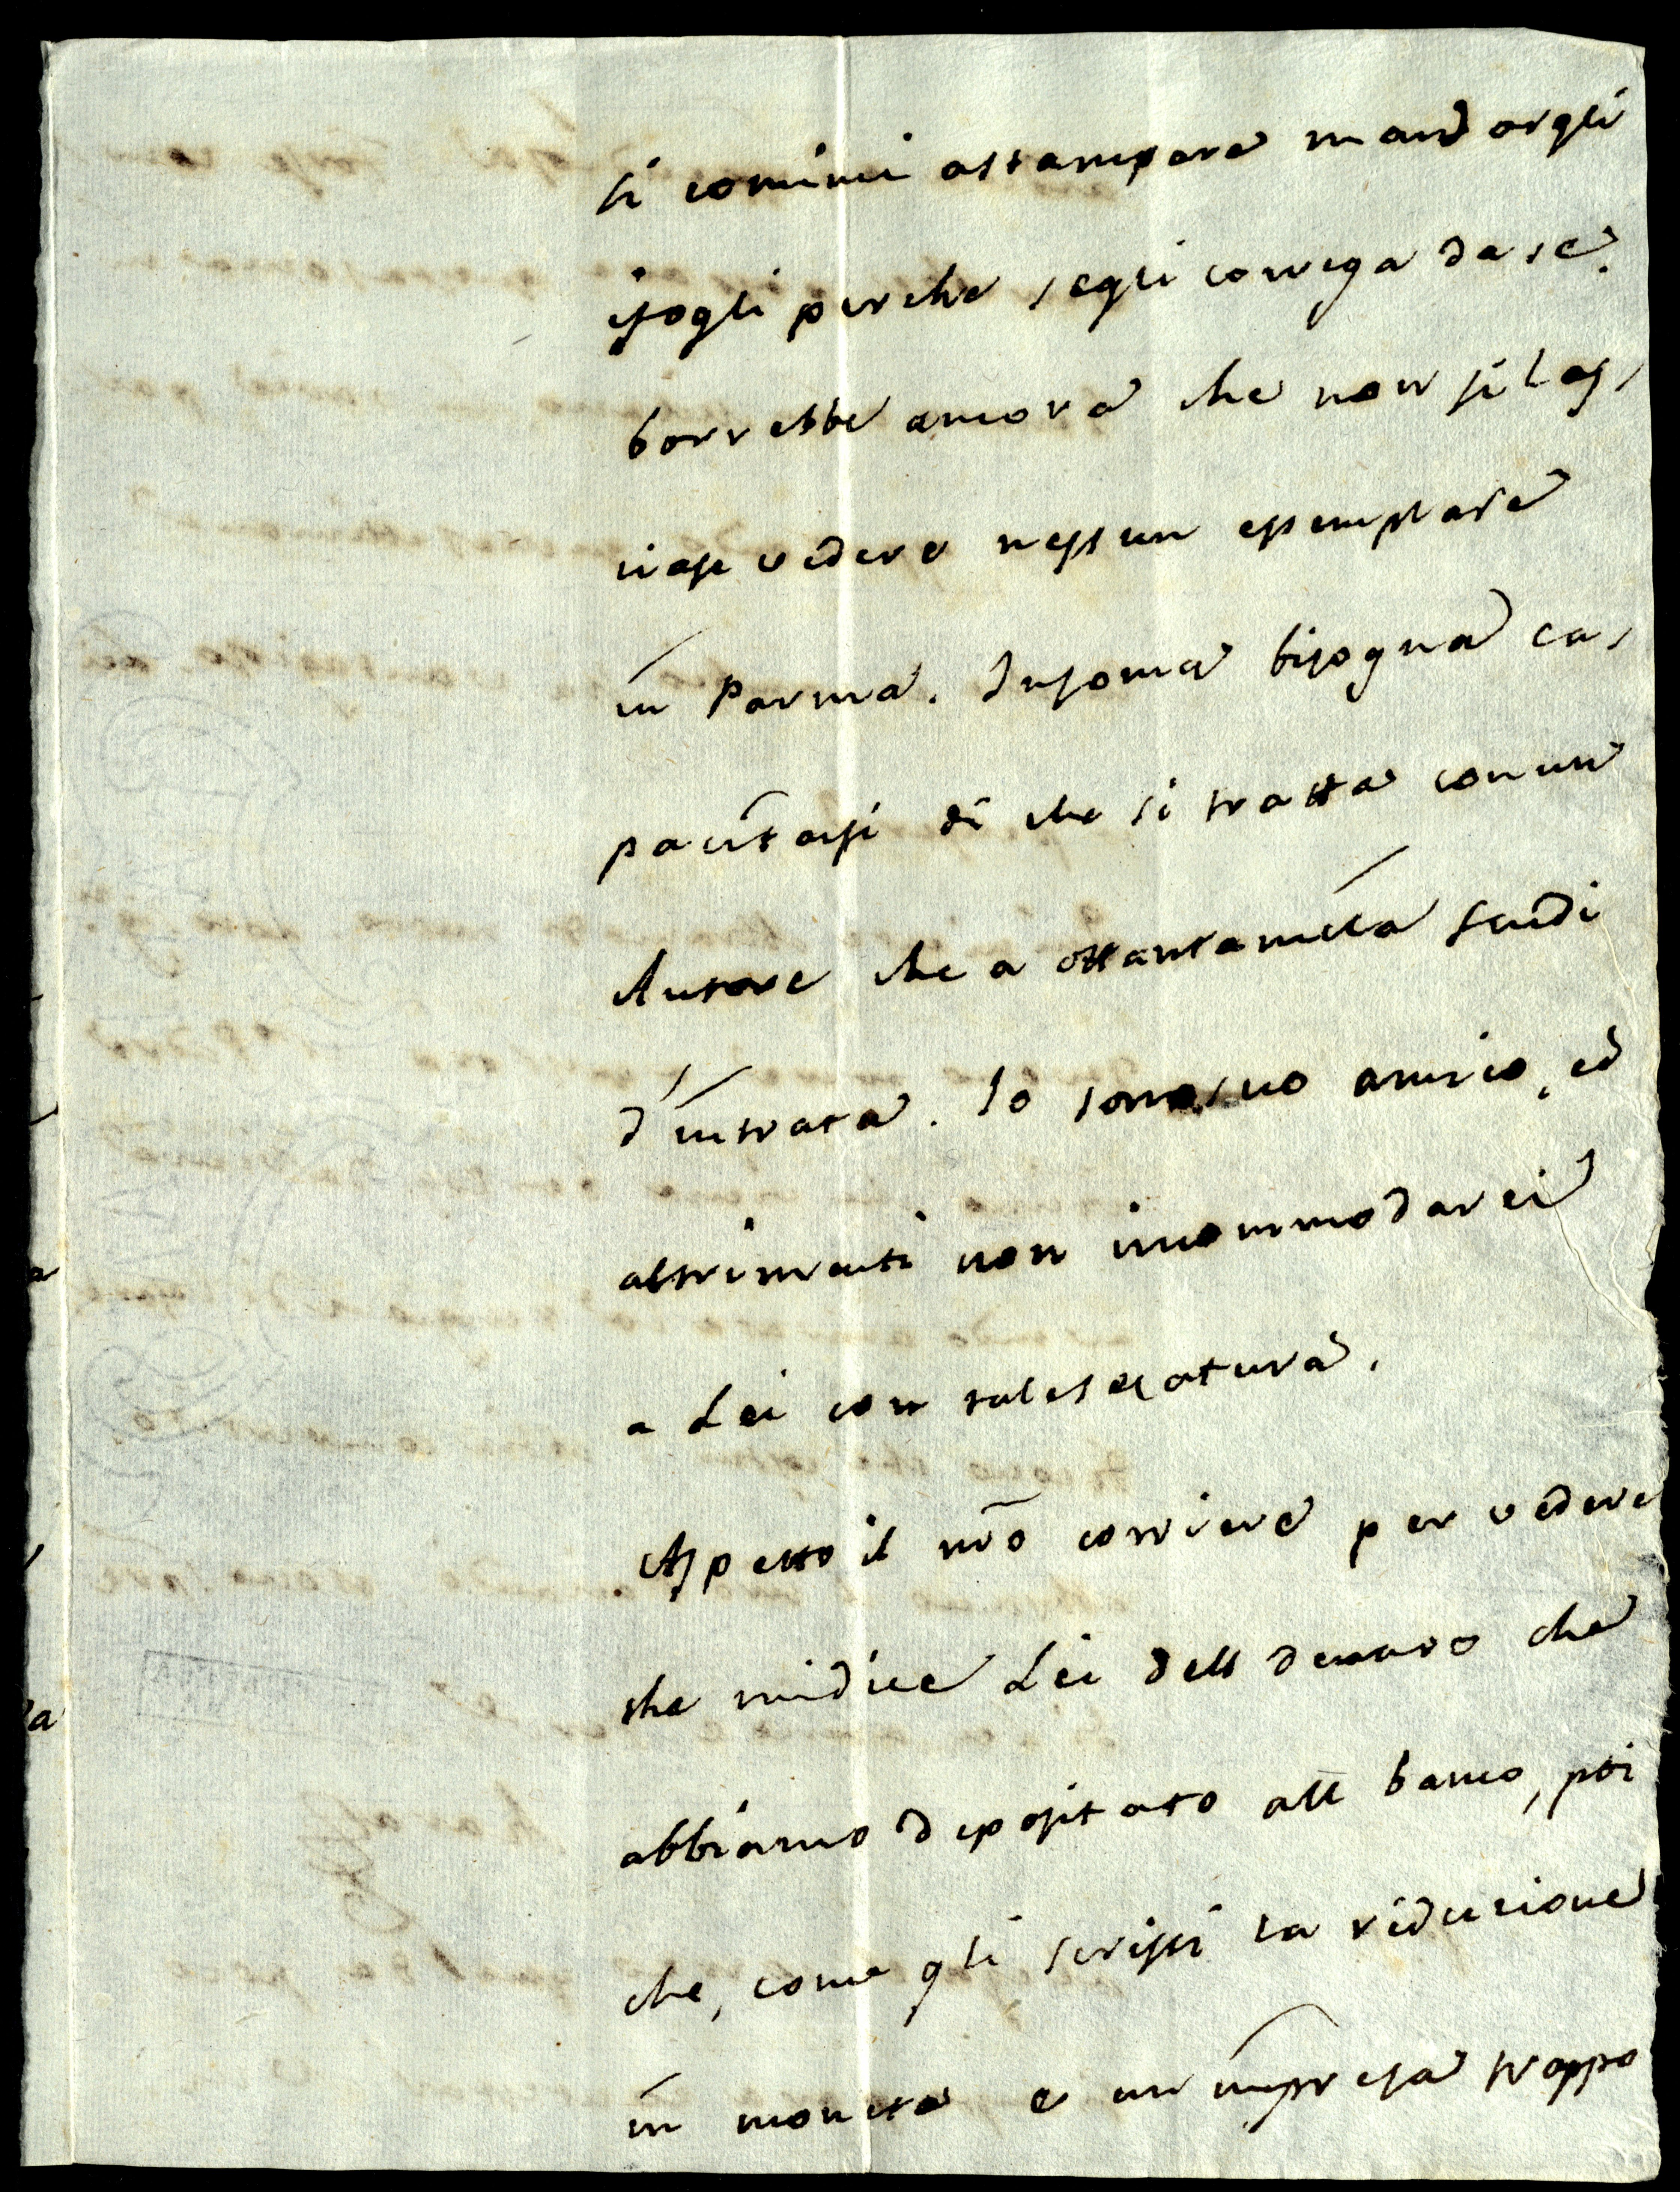 si cominci astampare mandargli
ifogli perche segli correga da se.
borrebbe ancora che non si las,
ciase vedere nessun essemplare
in Parma. Insoma bisogna ca,
pacitarsi di che si tratta con un
Autore che a ottantamila scudi
d'intrata. Io sono suo amico, ed
altrimenti non incommodarei
a Lei con tal secatura.
Aspetto il nrõ corriere per vedere
che midice Lei dell denaro che
abbiamo depositato all banco, poi
che, come gli scrissi la riducione
in moneta e un impresa troppo
a